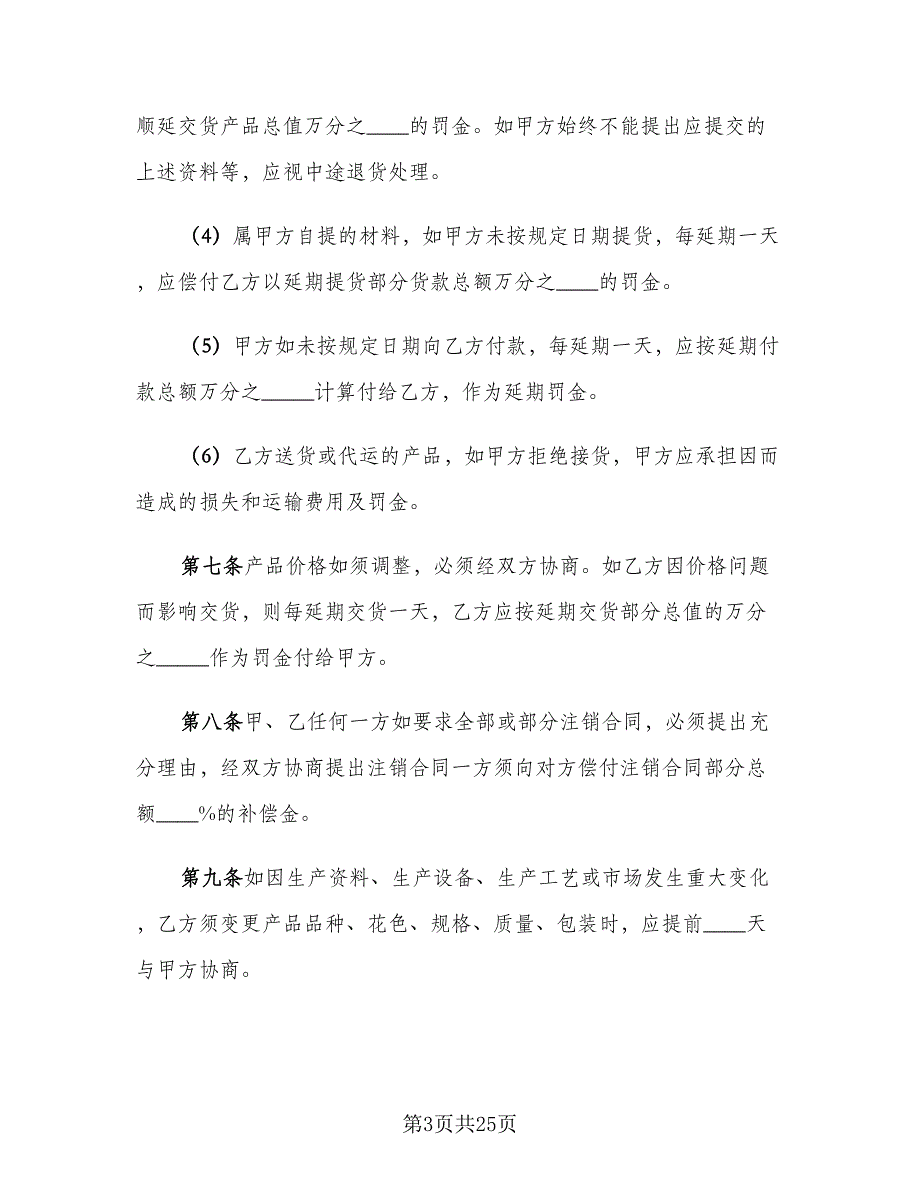 顺延交货产品总值万分之____的罚金。如甲方始终不能提出应提交的
上述资料等，应视中途退货处理。
（4）属甲方自提的材料，如甲方未按规定日期提货，每延期一天
，应偿付乙方以延期提货部分货款总额万分之____的罚金。
（5）甲方如未按规定日期向乙方付款，每延期一天，应按延期付
款总额万分之_____计算付给乙方，作为延期罚金。
（6）乙方送货或代运的产品，如甲方拒绝接货，甲方应承担因而
造成的损失和运输费用及罚金。
第七条产品价格如须调整，必须经双方协商。如乙方因价格问题
而影响交货，则每延期交货一天，乙方应按延期交货部分总值的万分
之_____作为罚金付给甲方。
第八条甲、乙任何一方如要求全部或部分注销合同，必须提出充
分理由，经双方协商提出注销合同一方须向对方偿付注销合同部分总
额____%的补偿金。
第九条如因生产资料、生产设备、生产工艺或市场发生重大变化
，乙方须变更产品品种、花色、规格、质量、包装时，应提前____天
与甲方协商。
第3页共25页